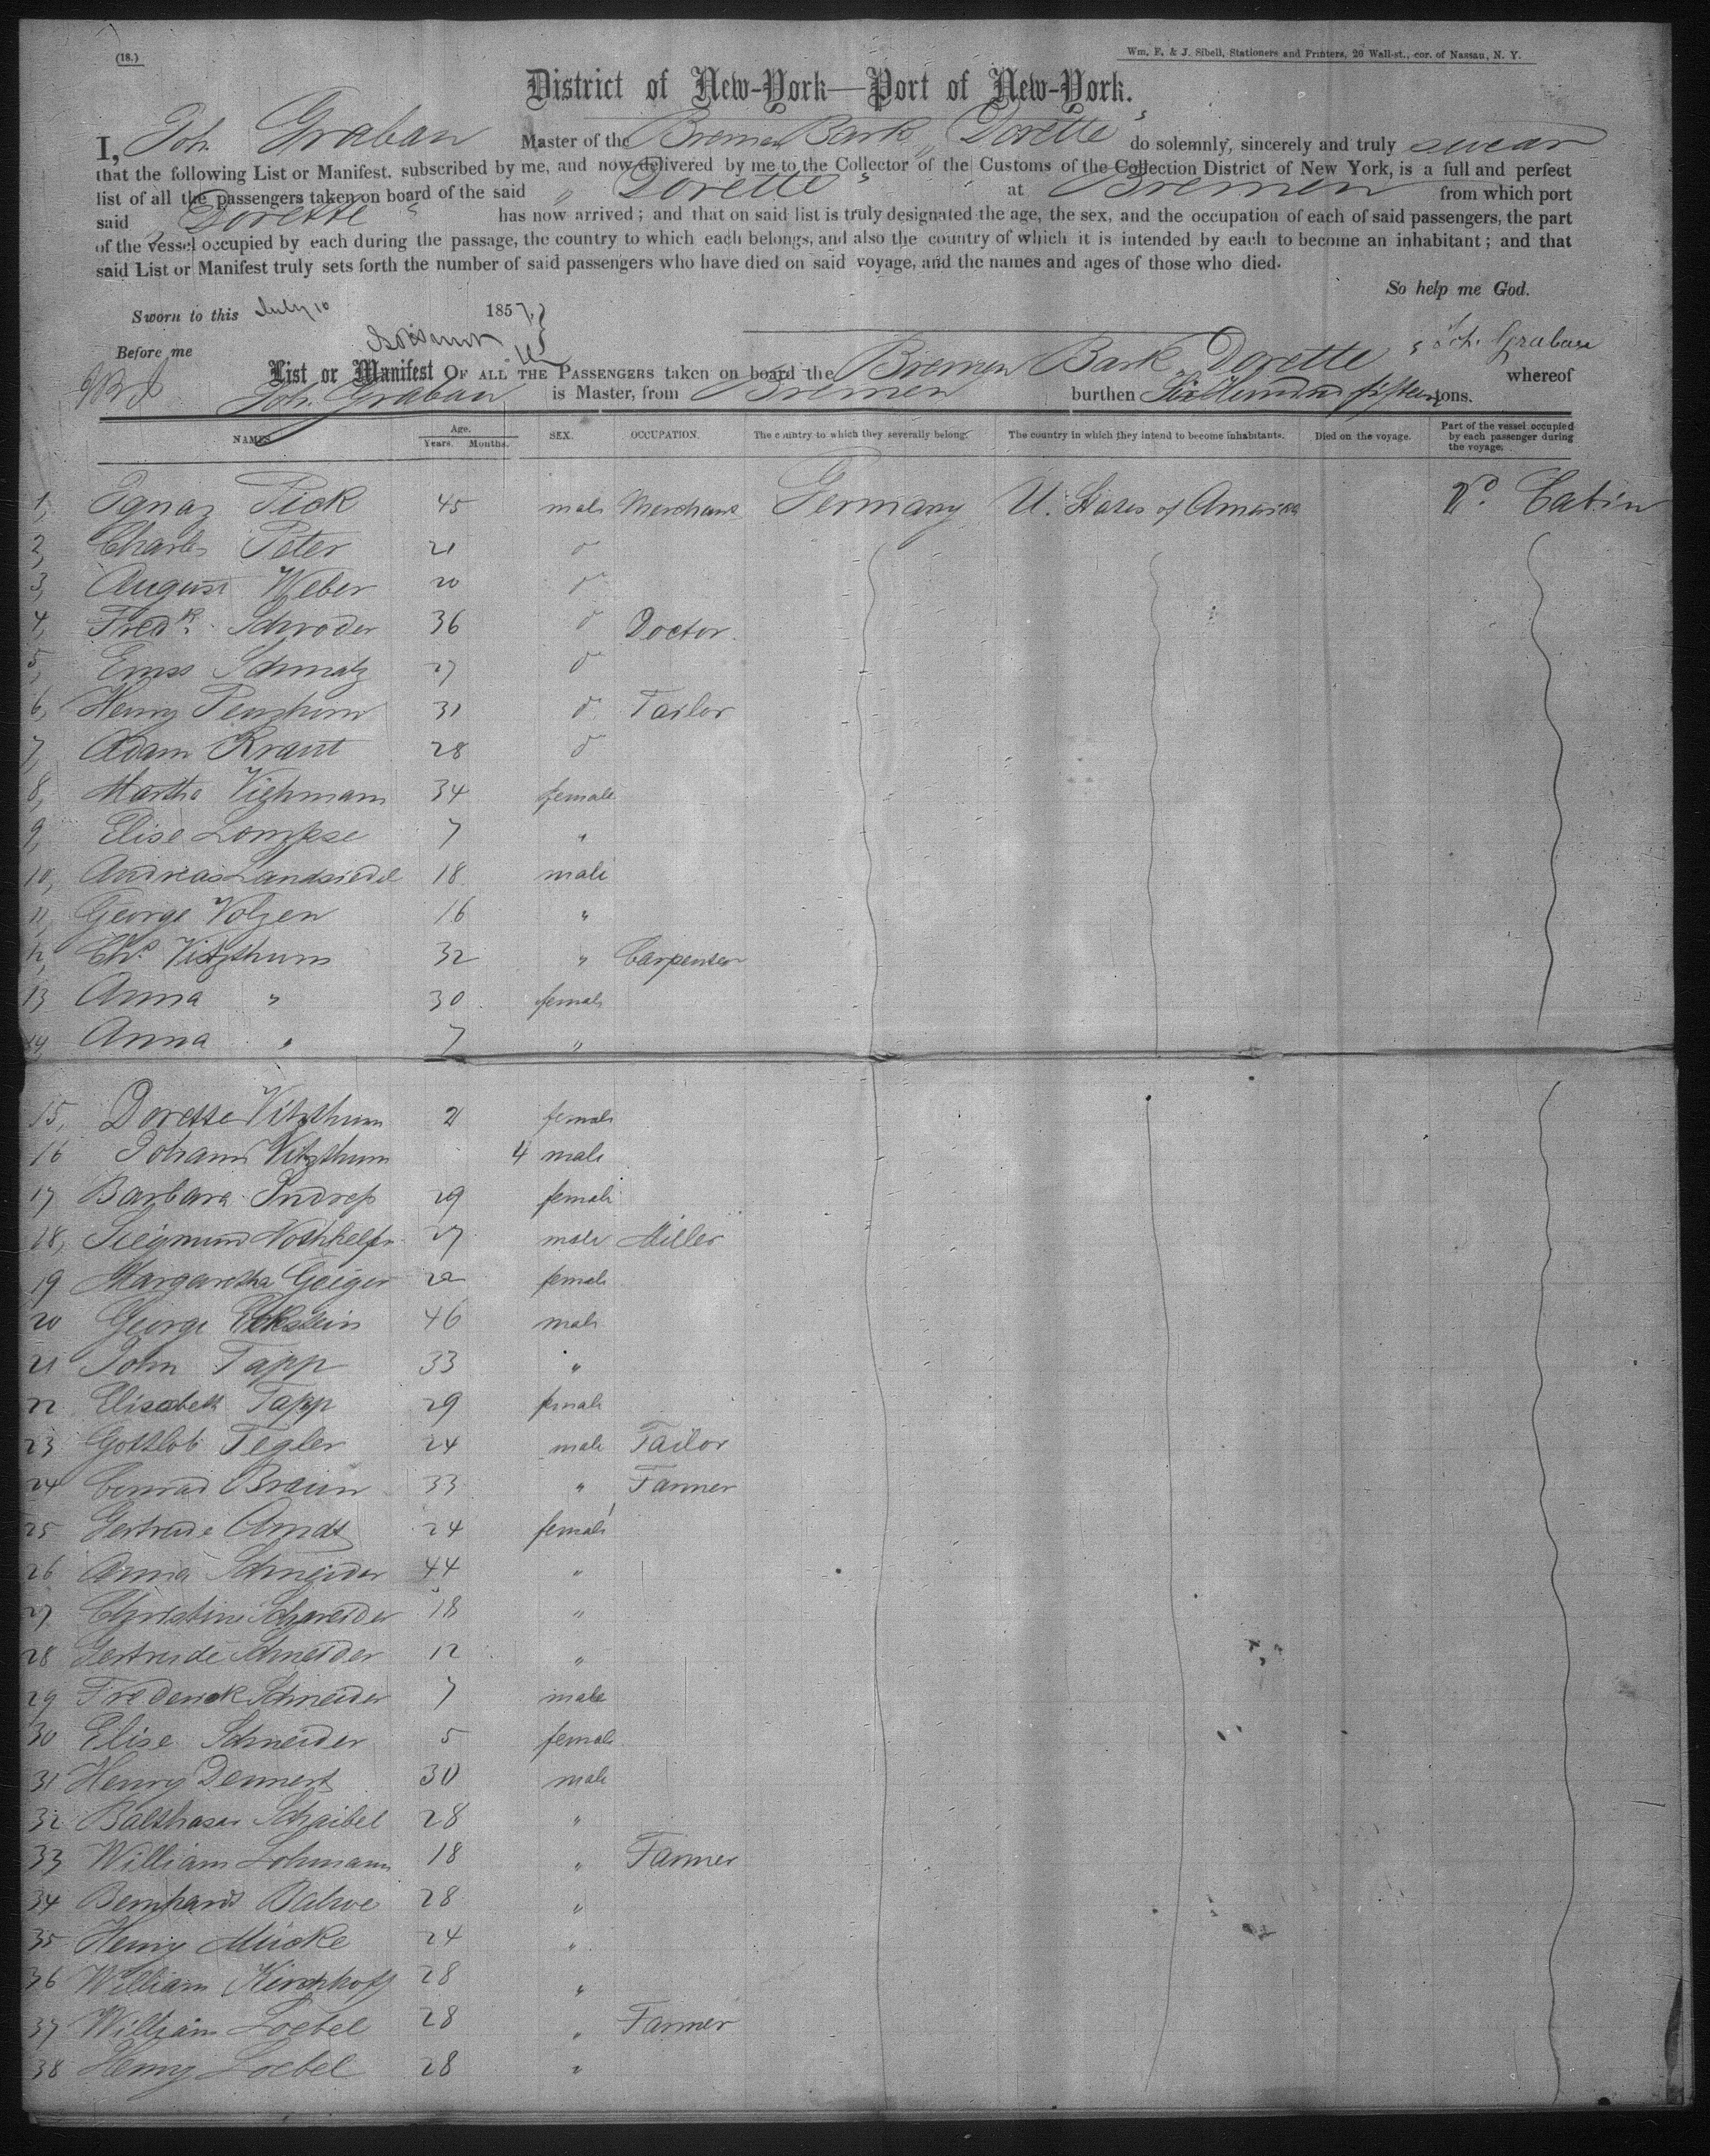 (18.)
Wm. F. & J. Sibell, Stationers and Printers, 26 Wall-st., cor. of Nassau, N. Y.
District of New-York—Port of New-York.
I, Joh. Graban Master of the Bremen Bark "Dorette" do solemnly, sincerely and truly swear
that the following List or Manifest, subscribed by me, and now delivered by me to the Collector of the Customs of the Collection District of New York, is a full and perfect
list of all the passengers taken on board of the said "Dorette" at Bremen from which port
said "Dorette" has now arrived; and that on said list is truly designated the age, the sex, and the occupation of each of said passengers, the part
of the vessel occupied by each during the passage, the country to which each belongs, and also the country of which it is intended by each to become an inhabitant; and that
said List or Manifest truly sets forth the number of said passengers who have died on said voyage, and the names and ages of those who died.
So help me God.
Sworn to this July 10 1857
Before me
Joh. Graban
List or Manifest OF ALL THE PASSENGERS taken on board the Bremen Bark "Dorette" whereof
Joh. Graban is Master, from Bremen burthen Six Hundred fifteen tons.
NAMES. Age. Years. Months. SEX. OCCUPATION. The country to which they severally belong. The country in which they intend to become inhabitants. Died on the voyage. Part of the vessel occupied by each passenger during the voyage.
1, Ignaz Pick 45 male Merchant Germany U. States of America Cabin
2, Charles Peter 21 do
3, August Weber 20 do
4, Fredk. Schroder 36 do Doctor.
5, Ernst Schmalz 27 do
6, Henry Penzhorn 31 do Tailor
7, Adam Kraut 28 do
8, Martha Viehmann 34 female
9, Elise Lompse 7 "
10, Andreas Landsiedel 18 male
11, George Volzen 16 "
12, Chs. Vitzthum 32 " Carpenter
13 Anna " 30 female
14, Anna " 7 "
15, Dorette Vitzthum 2 female
16 Johann Vitzthum 4 male
17 Barbara 29 female
18, Siegmund Nothhelfer 27 male Miller
19 Margaretha Geiger 22 female
20 George Eckstein 46 male
21 John Tapp 33 "
22 Elisabeth Tapp 29 female
23 Gottlob Tegler 24 male Tailor
24 Conrad Braun 33 " Farmer
25 Gertrude Arndt 24 female
26 Anna Schneider 44 "
27 Christine Schneider 18 "
28 Gertrude Schneider 12 "
29 Frederick Schneider 7 male
30 Elise Schneider 5 female
31 Henry Dennert 30 male
32 Balthasar Schaibel 28 "
33 William Lohmann 18 " Farmer
34 Bernhard 28 "
35 Henry Mücke 24 "
36 William Kirchhoff 28 "
37 William Loebel 28 " Farmer
38 Henry Loebel 28 "